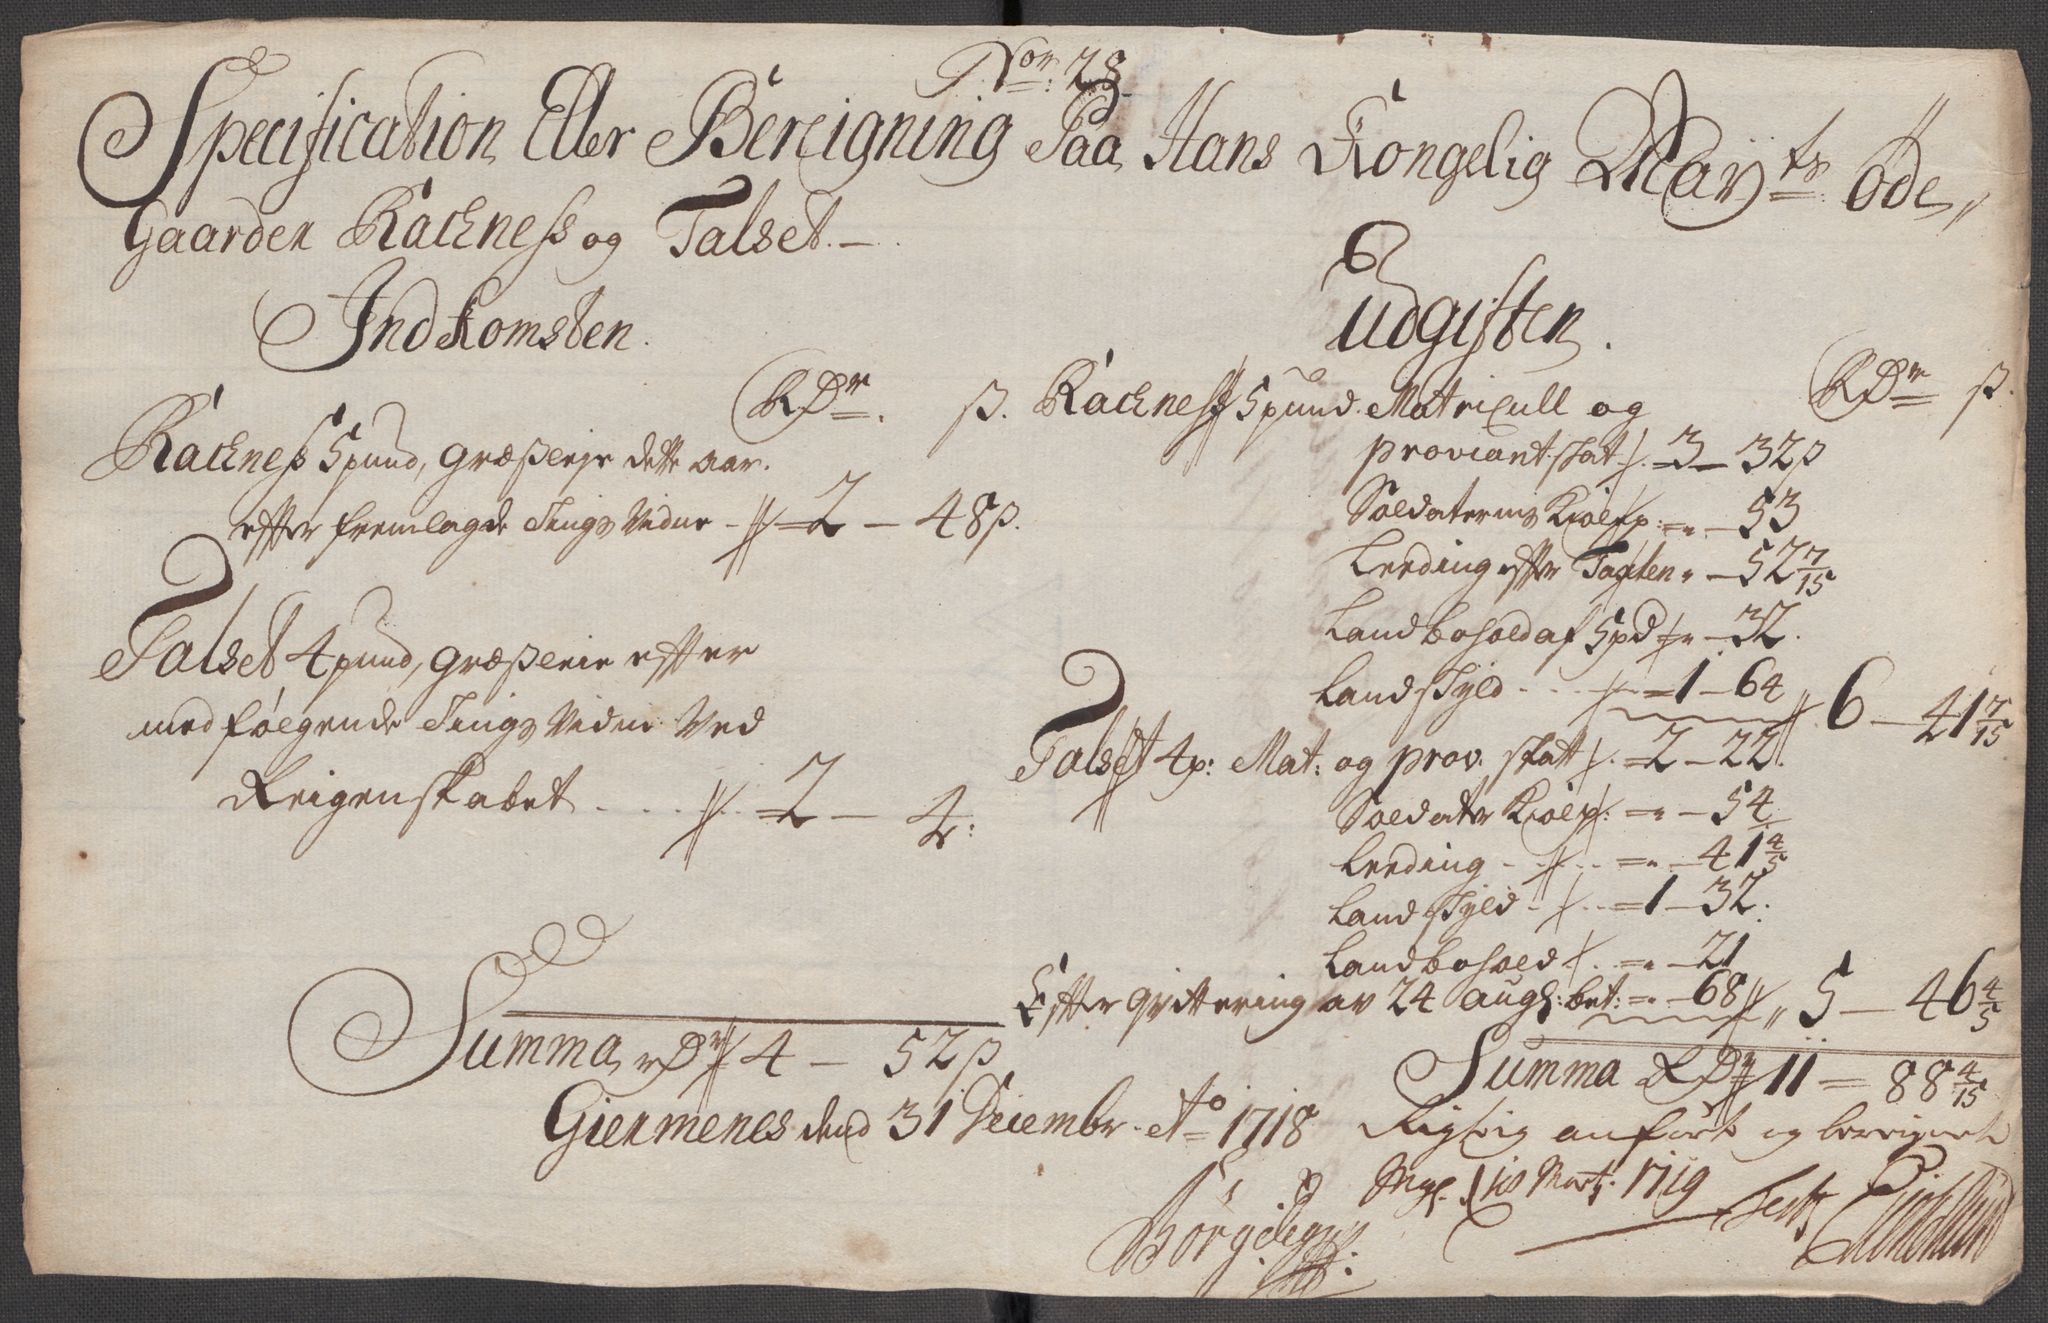 Nor: 28
Specification Eller Bereigning Paa Hans Kongelig Mayts øde
Gaarden Rackness og Talset.
Indkomsten.
RDr. ß.
Rackness 5 pund, græsleye dette aar.
effter fremlagde Tings Vidne 2 – 48 ß.
Talset 4 pund, græsleie effter
medfølgende Tings Vidne Ved
Reigenskabet 2 – 4:
Summa rDr 4 – 52 ß
Giermenes dend 31 Decembr. Ao 1718
Udgiften.
RDr ß.
Rackness 5 pund. Matricull og
proviant skat 3 – 32 ß
Soldaternis Kiolep: – 53
Leeding effter Taxten – 52 7/15
Landbohold af 5 pd – 32.
Landskyld 1 – 64 6 – 41 7/15
Talset 4 p: Mat: og prov. skatt 2 – 22.
Soldater Kiolep: – 54
Leeding – 41 4/5
Landskyld 1 – 32.
Landbohold – 21
Effter qvittering av 24 aug: bet: – 68 5 – 46 4/5
Summa RDr 11 – 88 4/15
Rigtig anført og bereignet
Marti 1719